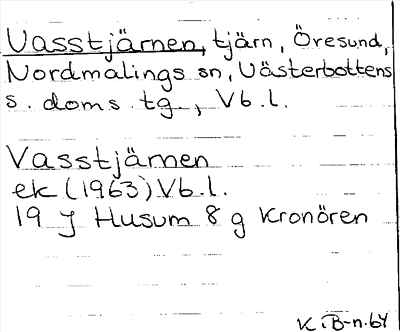 Vasstjärnen, tjärn, Öresund,
Nordmalings sn, Västerbottens
s. doms. tg., Vb.l.
Vasstjärnen
ek (1963) Vb.l.
19 J Husum 8 g Kronören
K.B-n. 64